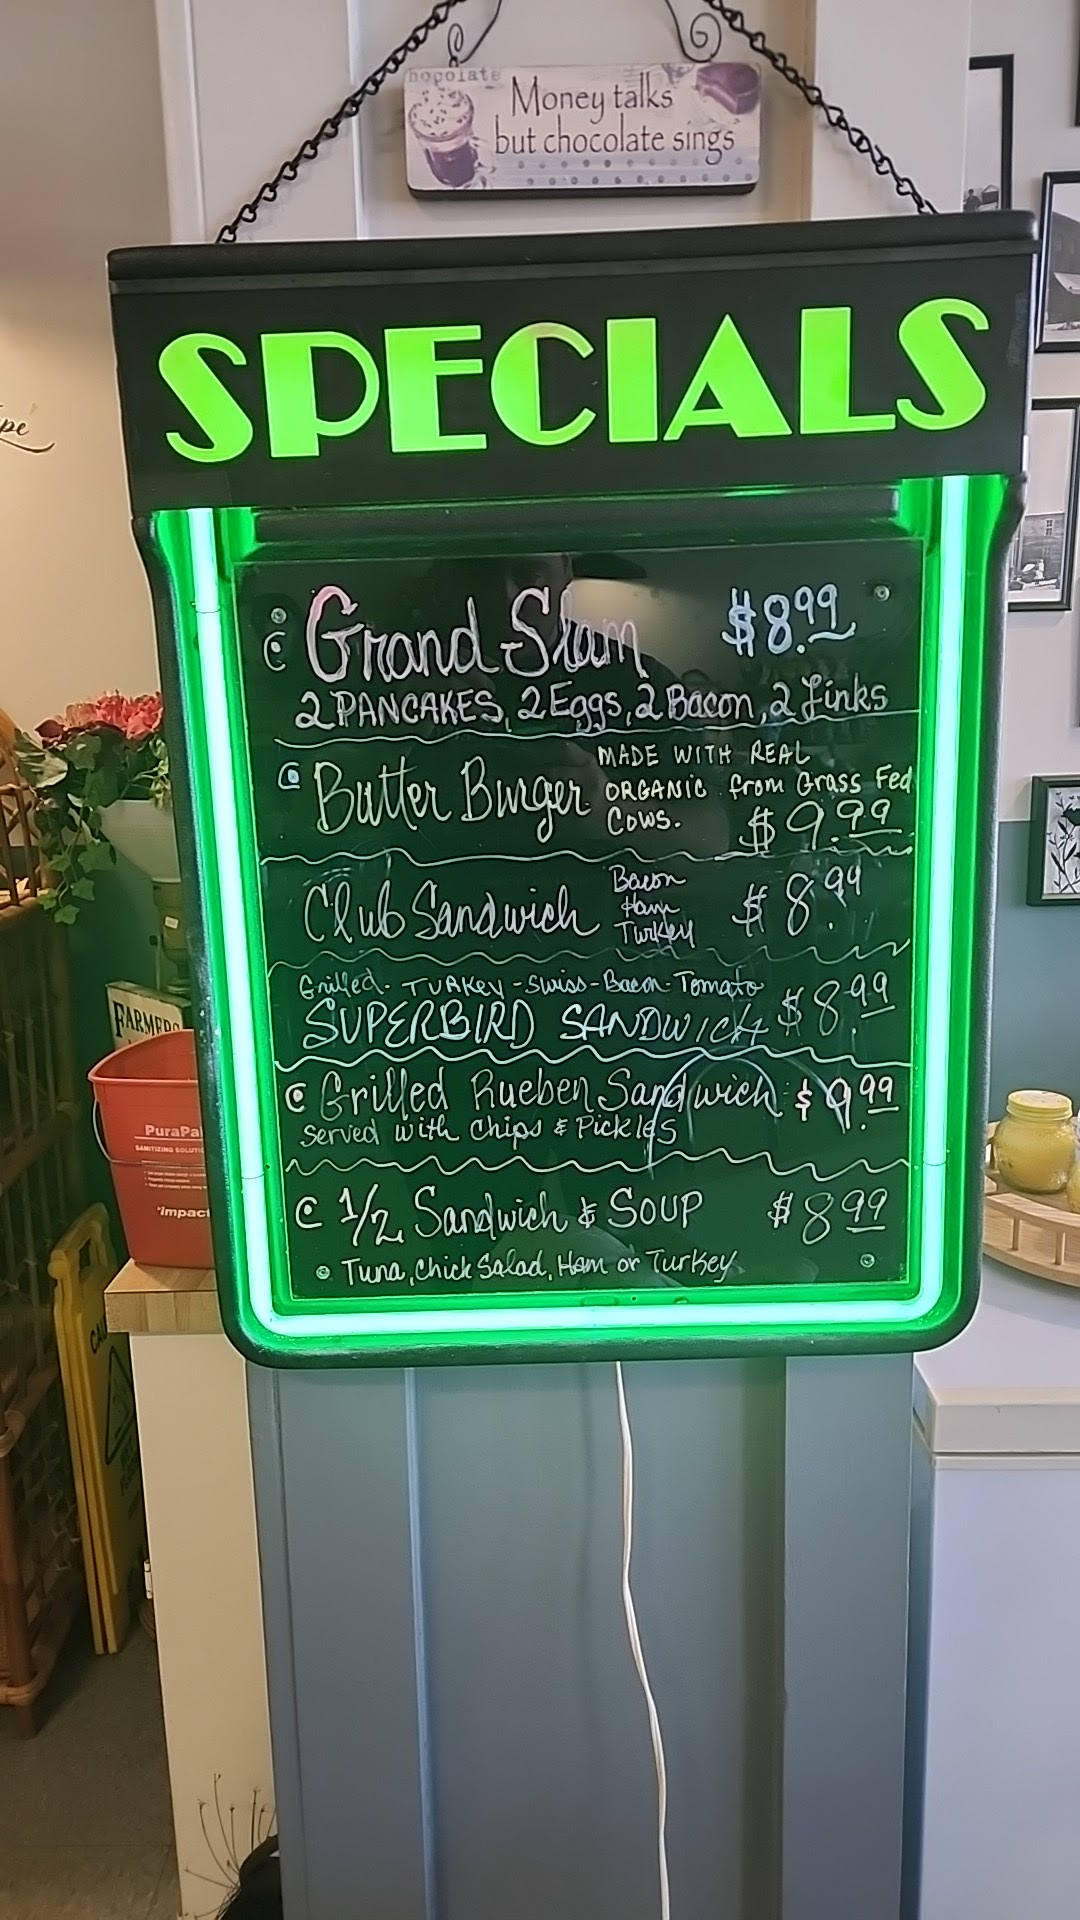 hocolate
Money talks
but chocolate sings
SPECIALS
Grand Slam $8.99
2 PANCAKES, 2 Eggs, 2 Bacon, 2 Links
Butter Burger MADE WITH REAL
ORGANIC from Grass Fed
Cows. $9.99
Club Sandwich Bacon
Ham
Turkey $8.99
Grilled - TURKey - Swiss - Bacon - Tomato
SUPERBIRD SANDWICH $8.99
Grilled Rueben Sandwich $9.99
Served with Chips & Pickles
1/2 Sandwich & SOUP $8.99
Tuna, Chick Salad, HAM or Turkey
FARMERS
PuraPai
SANITIZING SOLUTIO
impact
CAU
pe